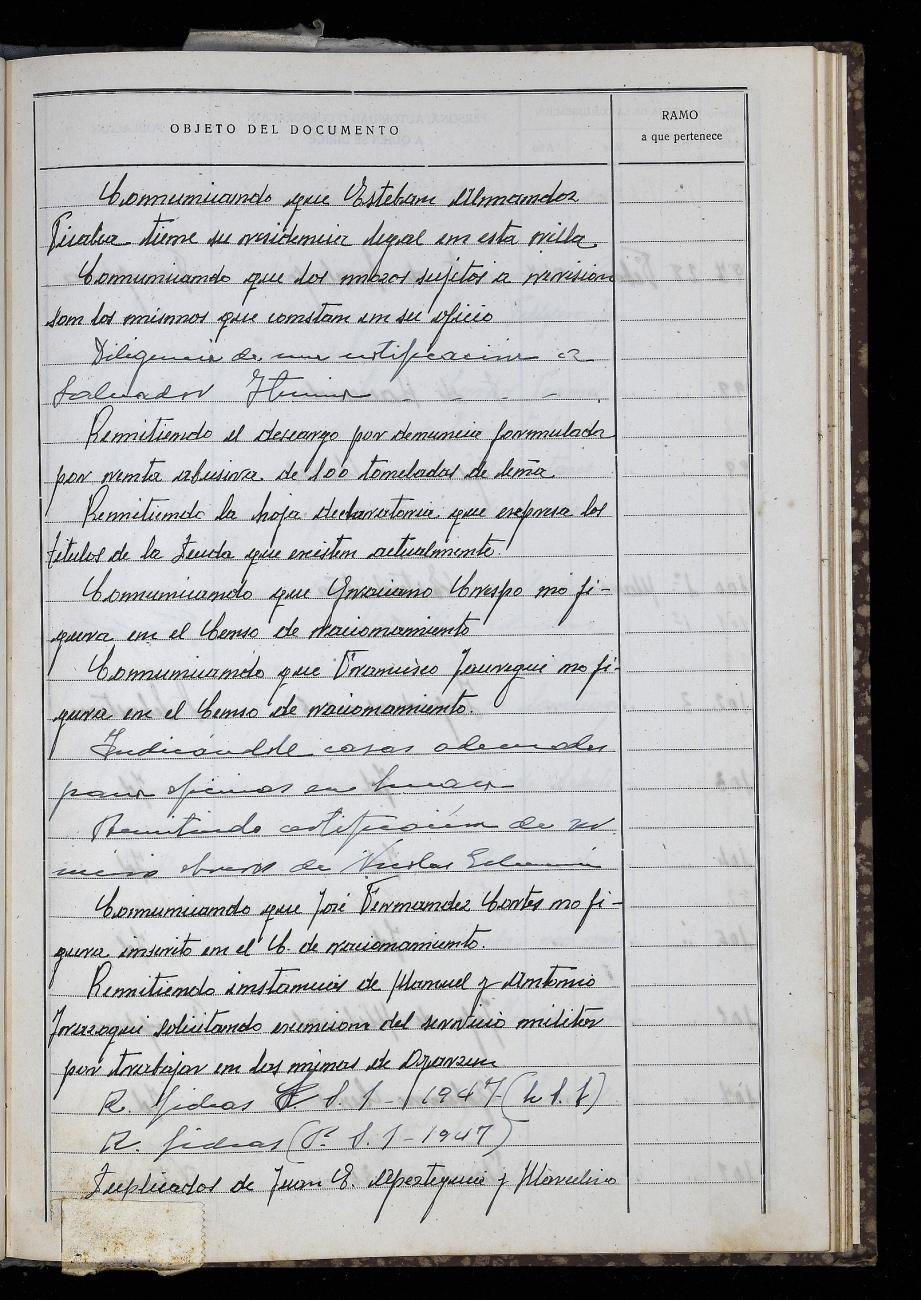 OBJETO DEL DOCUMENTO
RAMO
a que pertenece
Comunicando que Esteban
tiene su residencia legal en esta villa
Comunicando que los mozos sujetos a revision
son los mismos que constan en su oficio
Diligencia de una notificacion a
Salvador
Remitiendo el descargo por denuncia formulada
por venta abusiva de 100 toneladas de leña
Remitiendo la hoja declaratoria que expresa los
titulos de la Deuda que existen actualmente.
Comunicando que Graciano Crespo no fi-
gura en el Censo de racionamiento
Comunicando que Francisco Jauregui no fi-
gura en el Censo de racionamiento.
Indicándole casas adecuadas
para oficinas en
Remitiendo certificación de
de Nicolas
Comunicando que José Fernandez Cortes no fi-
gura inscrito en el C. de racionamiento.
Remitiendo instancias de Manuel y Antonio
solicitando exencion del servicio militar
por trabajar en las minas de
R. S. 1 - 1947 -
R. S. 1 - 1947)
Duplicados de Juan E. Apesteguia y Marcelino